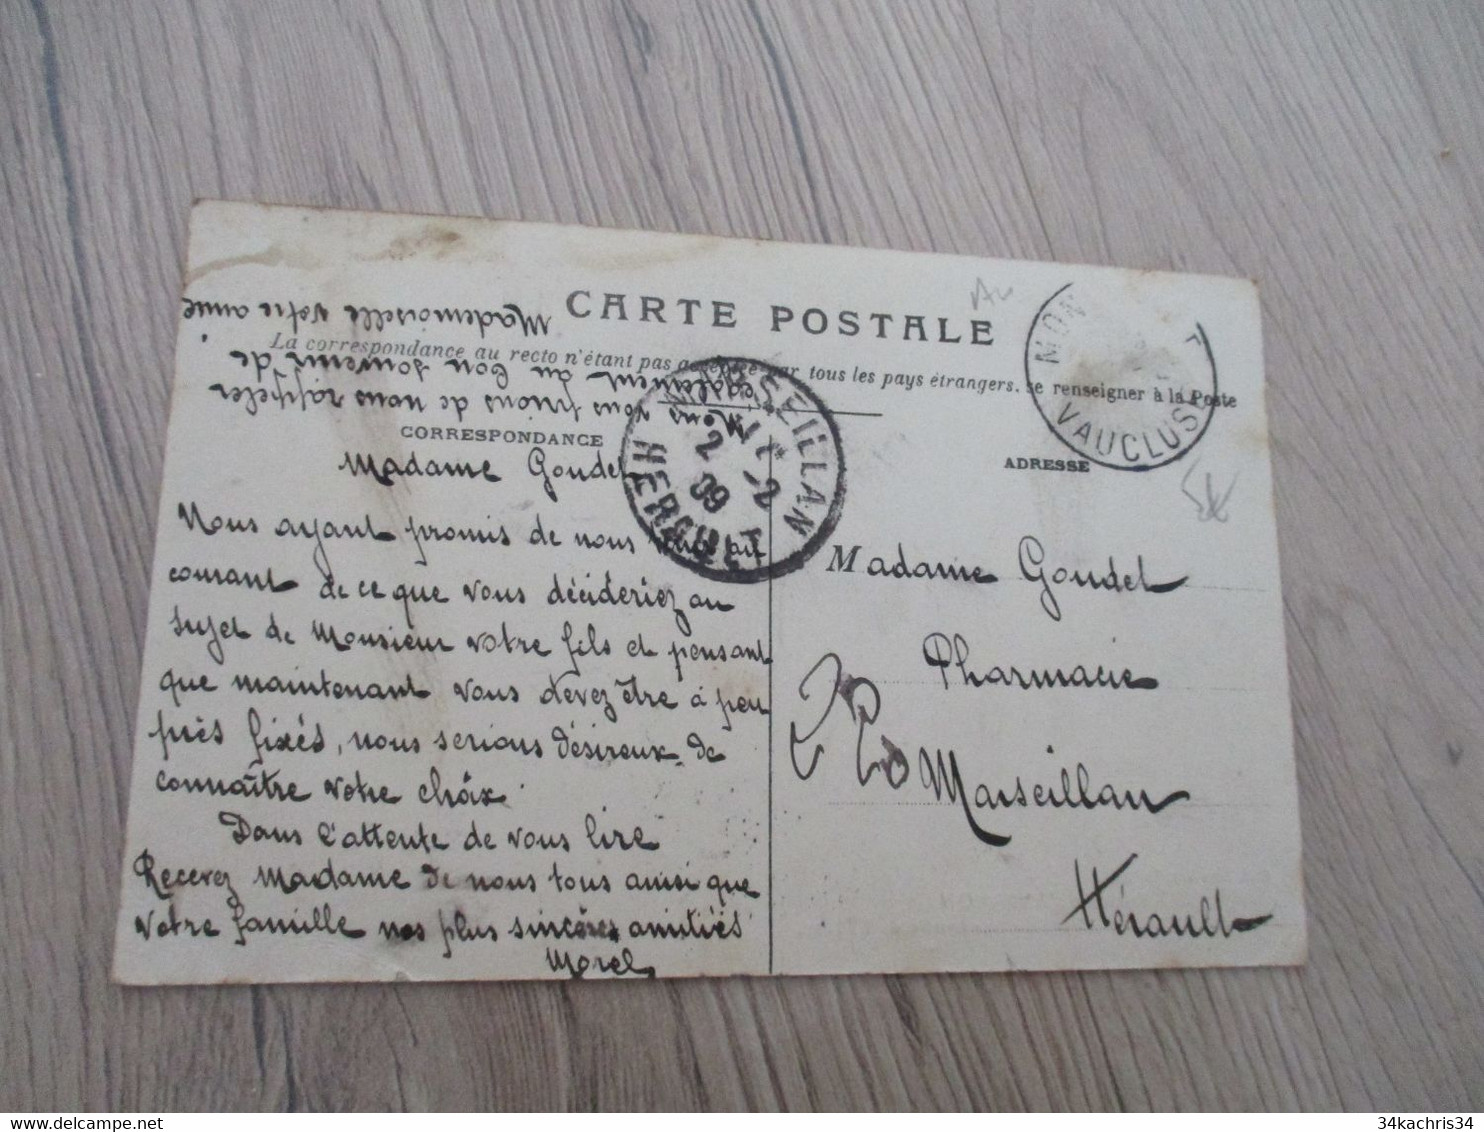 CARTE POSTALE
La correspondance au recto n'étant pas acceptée par tous les pays étrangers, se renseigner à la Poste
CORRESPONDANCE
ADRESSE
Madame Goudel
Nous ayant promis de nous au
courant de ce que vous décideriez au
sujet de Monsieur votre fils et pensant
que maintenant vous devez être à peu
près fixés, nous serions désireux de
connaître votre choix.
Dans l'attente de vous lire
Recevez Madame de nous tous ainsi que
votre famille nos plus sincères amitiés
Morel
Nous vous prions de nous rappeler
également au bon souvenir de
Mademoiselle votre amie.
MARSEILLAN
2 09
HERAULT
MON
VAUCLUSE
Madame Goudel
Pharmacie
Marseillan
Hérault
34kachris34